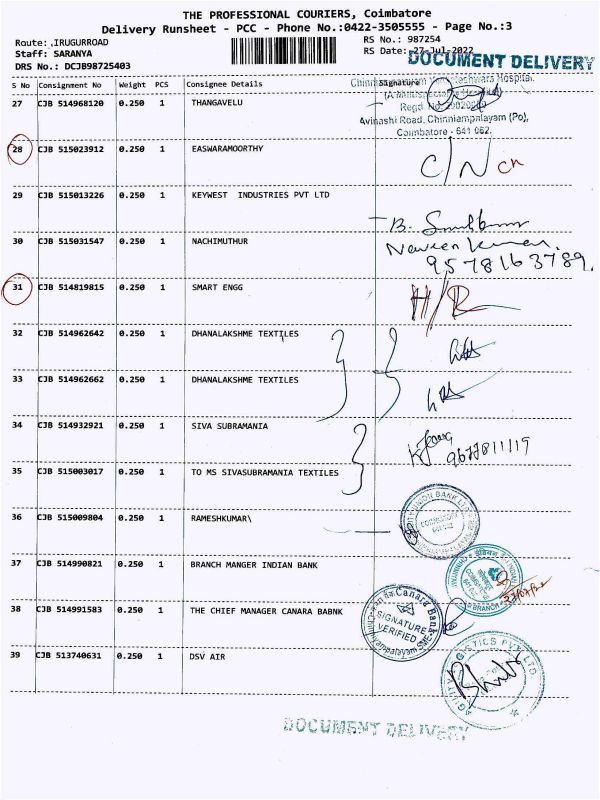 THE PROFESSIONAL COURIERS, Coimbatore
Delivery Runsheet - PCC - Phone No.:0422-3505555 - Page No.:3
Route: .IRUGURROAD
RS No.: 987254
Staff: SARANYA
RS Date: 27-Jul-2022
DOCUMENT DELIVERY
DRS No.: DCJB98725403
S No Consignment No Weight PCS Consignee Details Signature
27 CJB 514968120 0.250 1 THANGAVELU
Hospital.
Regd. No.
Avinashi Road, Chinniampalayam (Po),
Coimbatore - 641 062.
28 CJB 515023912 0.250 1 EASWARAMOORTHY C/N
29 CJB 515013226 0.250 1 KEYWEST INDUSTRIES PVT LTD
B.
30 CJB 515031547 0.250 1 NACHIMUTHUR
Naveen Kumar.
9578163789.
31 CJB 514819815 0.250 1 SMART ENGG
32 CJB 514962642 0.250 1 DHANALAKSHME TEXTILES
33 CJB 514962662 0.250 1 DHANALAKSHME TEXTILES
34 CJB 514932921 0.250 1 SIVA SUBRAMANIA
9677811119
35 CJB 515003017 0.250 1 TO MS SIVASUBRAMANIA TEXTILES
36 CJB 515009804 0.250 1 RAMESHKUMAR\
UNION BANK
37 CJB 514990821 0.250 1 BRANCH MANGER INDIAN BANK
BRANCH
27/07/22
38 CJB 514991583 0.250 1 THE CHIEF MANAGER CANARA BABNK
Canara Bank
SIGNATURE
VERIFIED
39 CJB 513740631 0.250 1 DSV AIR
AGILITY LOGISTICS PVT LTD
DOCUMENT DELIVERY